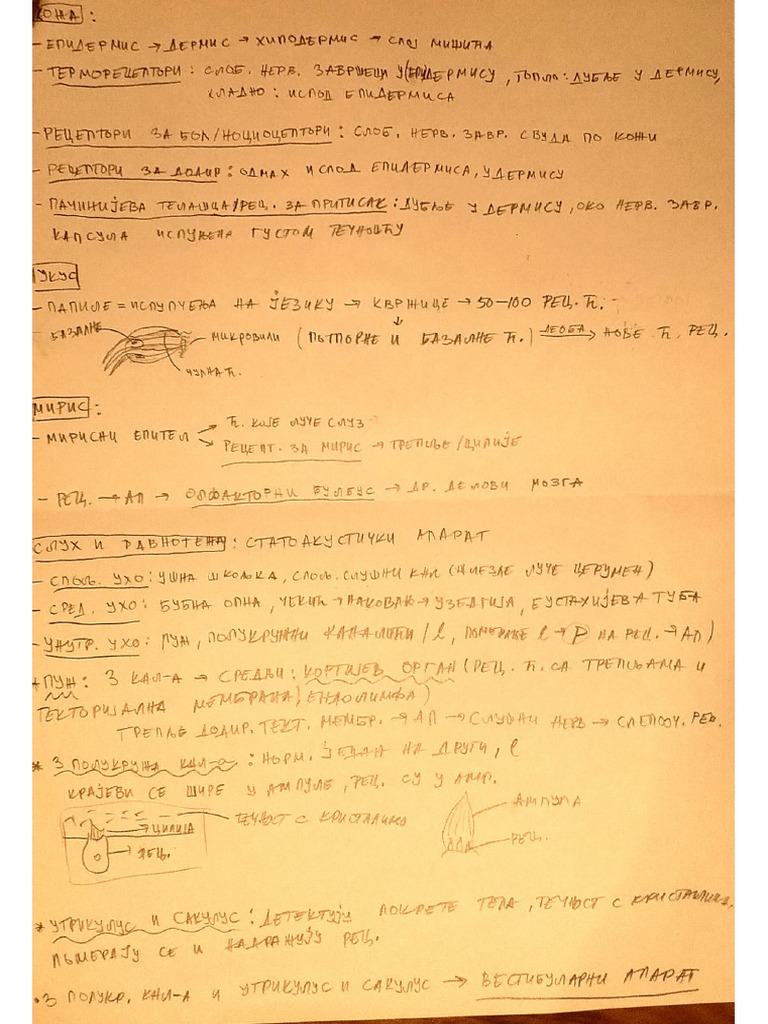 КОЖА:
- ЕПИДЕРМИС → ДЕРМИС → ХИПОДЕРМИС → СЛОЈ МИШИЋА
- ТЕРМОРЕЦЕПТОРИ: СЛОБ. НЕРВ. ЗАВРШЕЦИ У (ЕПИ)ДЕРМИСУ, ТОПЛО: ДУБЉЕ У ДЕРМИСУ,
ХЛАДНО: ИСПОД ЕПИДЕРМИСА
- РЕЦЕПТОРИ ЗА БОЛ/НОЦИОЦЕПТОРИ: СЛОБ. НЕРВ. ЗАВР. СВУДА ПО КОЖИ
- РЕЦЕПТОРИ ЗА ДОДИР: ОДМАХ ИСПОД ЕПИДЕРМИСА, У ДЕРМИСУ
- ПАЧИНИЈЕВА ТЕЛАШЦА/РЕЦ. ЗА ПРИТИСАК: ДУБЉЕ У ДЕРМИСУ, ОКО НЕРВ. ЗАВР.
КАПСУЛА ИСПУЊЕНА ГУСТОМ ТЕЧНОШЋУ
УКУС
- ПАПИЛЕ = ИСПУПЧЕЊА НА ЈЕЗИКУ → КВРЖИЦЕ → 50-100 РЕЦ. Ћ.
БАЗАЛНЕ
МИКРОВИЛИ (ПОТПОРНЕ И БАЗАЛНЕ Ћ.) ДЕОБА → НОВЕ Ћ. РЕЦ.
ЧУЛНА Ћ.
МИРИС:
- МИРИСНИ ЕПИТЕЛ → Ћ. КОЈЕ ЛУЧЕ СЛУЗ
→ РЕЦЕПТ. ЗА МИРИС → ТРЕПЉЕ/ЦИЛИЈЕ
- РЕЦ. → АП → ОЛФАКТОРНИ БУЛБУС → ДР. ДЕЛОВИ МОЗГА
СЛУХ И РАВНОТЕЖА: СТАТОАКУСТИЧКИ АПАРАТ
- СПОЉ. УХО: УШНА ШКОЉКА, СПОЉ. СЛУШНИ КНЛ (ЖЛЕЗДЕ ЛУЧЕ ЦЕРУМЕН)
- СРЕД. УХО: БУБНА ОПНА, ЧЕКИЋ → НАКОВАЊ → УЗЕНГИЈА, ЕУСТАХИЈЕВА ТУБА
- УНУТР. УХО: ПУЖ, ПОЛУКРУЖНИ КАНАЛИЋИ (l, ПОМЕРАЊЕ l → P НА РЕЦ. → АП)
* ПУЖ: 3 КАЛ-А → СРЕДЊИ: КОРТИЈЕВ ОРГАН (РЕЦ. Ћ. СА ТРЕПЉАМА И
ТЕКТОРИЈАЛНА МЕМБРАНА, ЕНДОЛИМФА)
ТРЕПЉЕ ДОДИР. ТЕКТ. МЕМБР. → АП → СЛУШНИ НЕРВ → СЛЕПООЧ. РЕЖ.
* 3 ПОЛУКРУЖНА КНЛ-А: НОРМ. ЈЕДАН НА ДРУГИ, l
КРАЈЕВИ СЕ ШИРЕ У АМПУЛЕ, РЕЦ. СУ У АМП.
ТЕЧНОСТ С КРИСТАЛИМА
ЦИЛИЈА
РЕЦ.
АМПУЛА
РЕЦ.
* УТРИКУЛУС И САКУЛУС: ДЕТЕКТУЈУ ПОКРЕТЕ ТЕЛА, ТЕЧНОСТ С КРИСТАЛИМА.
ПОМЕРАЈУ СЕ И НАДРАЖУЈУ РЕЦ.
• 3 ПОЛУКР. КНЛ-А И УТРИКУЛУС И САКУЛУС → ВЕСТИБУЛАРНИ АПАРАТ